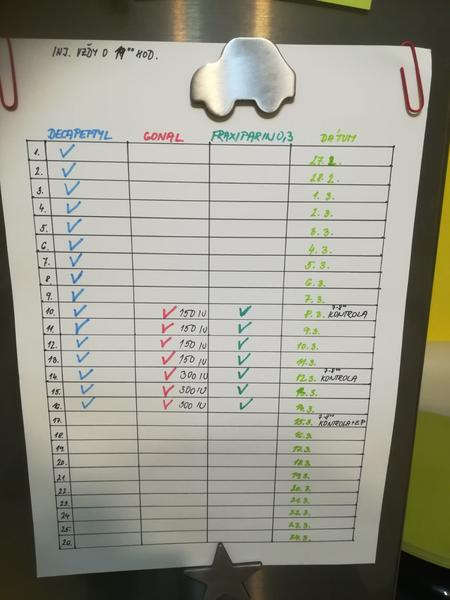 INJ. VŽDY O 19⁰⁰ HOD.
DECAPEPTYL GONAL FRAXIPARIN 0,3 DÁTUM
1. ✓ 27.2.
2. ✓ 28.2.
3. ✓ 1.3.
4. ✓ 2.3.
5. ✓ 3.3.
6. ✓ 4.3.
7. ✓ 5.3.
8. ✓ 6.3.
9. ✓ 7.3.
10. ✓ ✓ 150 IU ✓ 8.3. KONTROLA
11. ✓ ✓ 150 IU ✓ 9.3.
12. ✓ ✓ 150 IU ✓ 10.3.
13. ✓ ✓ 150 IU ✓ 11.3.
14. ✓ ✓ 300 IU ✓ 12.3. KONTROLA
15. ✓ ✓ 300 IU ✓ 13.3.
16. ✓ ✓ 300 IU ✓ 14.3.
17. 15.3. KONTROLA
18. 16.3.
19. 17.3.
20. 18.3.
21. 19.3.
22. 20.3.
23. 21.3.
24. 22.3.
25. 23.3.
26. 24.3.